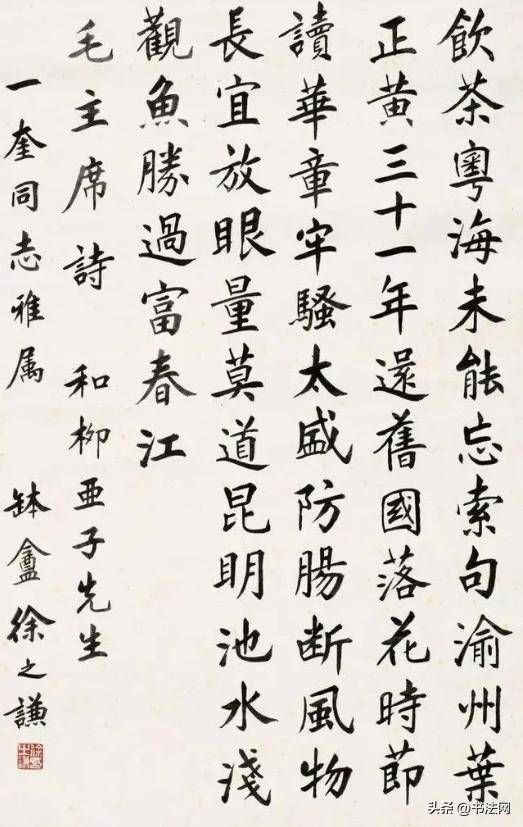 飲茶粵海未能忘索句渝州葉
正黃三十一年還舊國落花時節
讀華章牢騷太盛防腸断風物
長宜放眼量莫道昆明池水淺
觀魚勝過富春江
毛主席詩 和柳亞子先生
一奎同志雅属 缽盦徐之謙
徐之謙
头条 @书法网